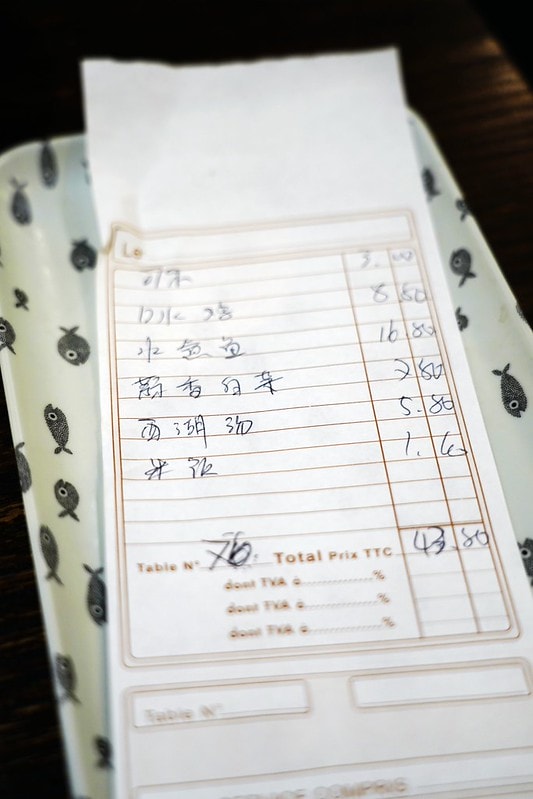 Le
可乐 3.00
口水鸡 8.80
水煮鱼 16.80
香白菜 7.80
西湖汤 5.80
米饭 1.60
Table N° Total Prix TTC 43.80
dont TVA à %
dont TVA à %
dont TVA à %
Table N°
SERVICE COMPRIS